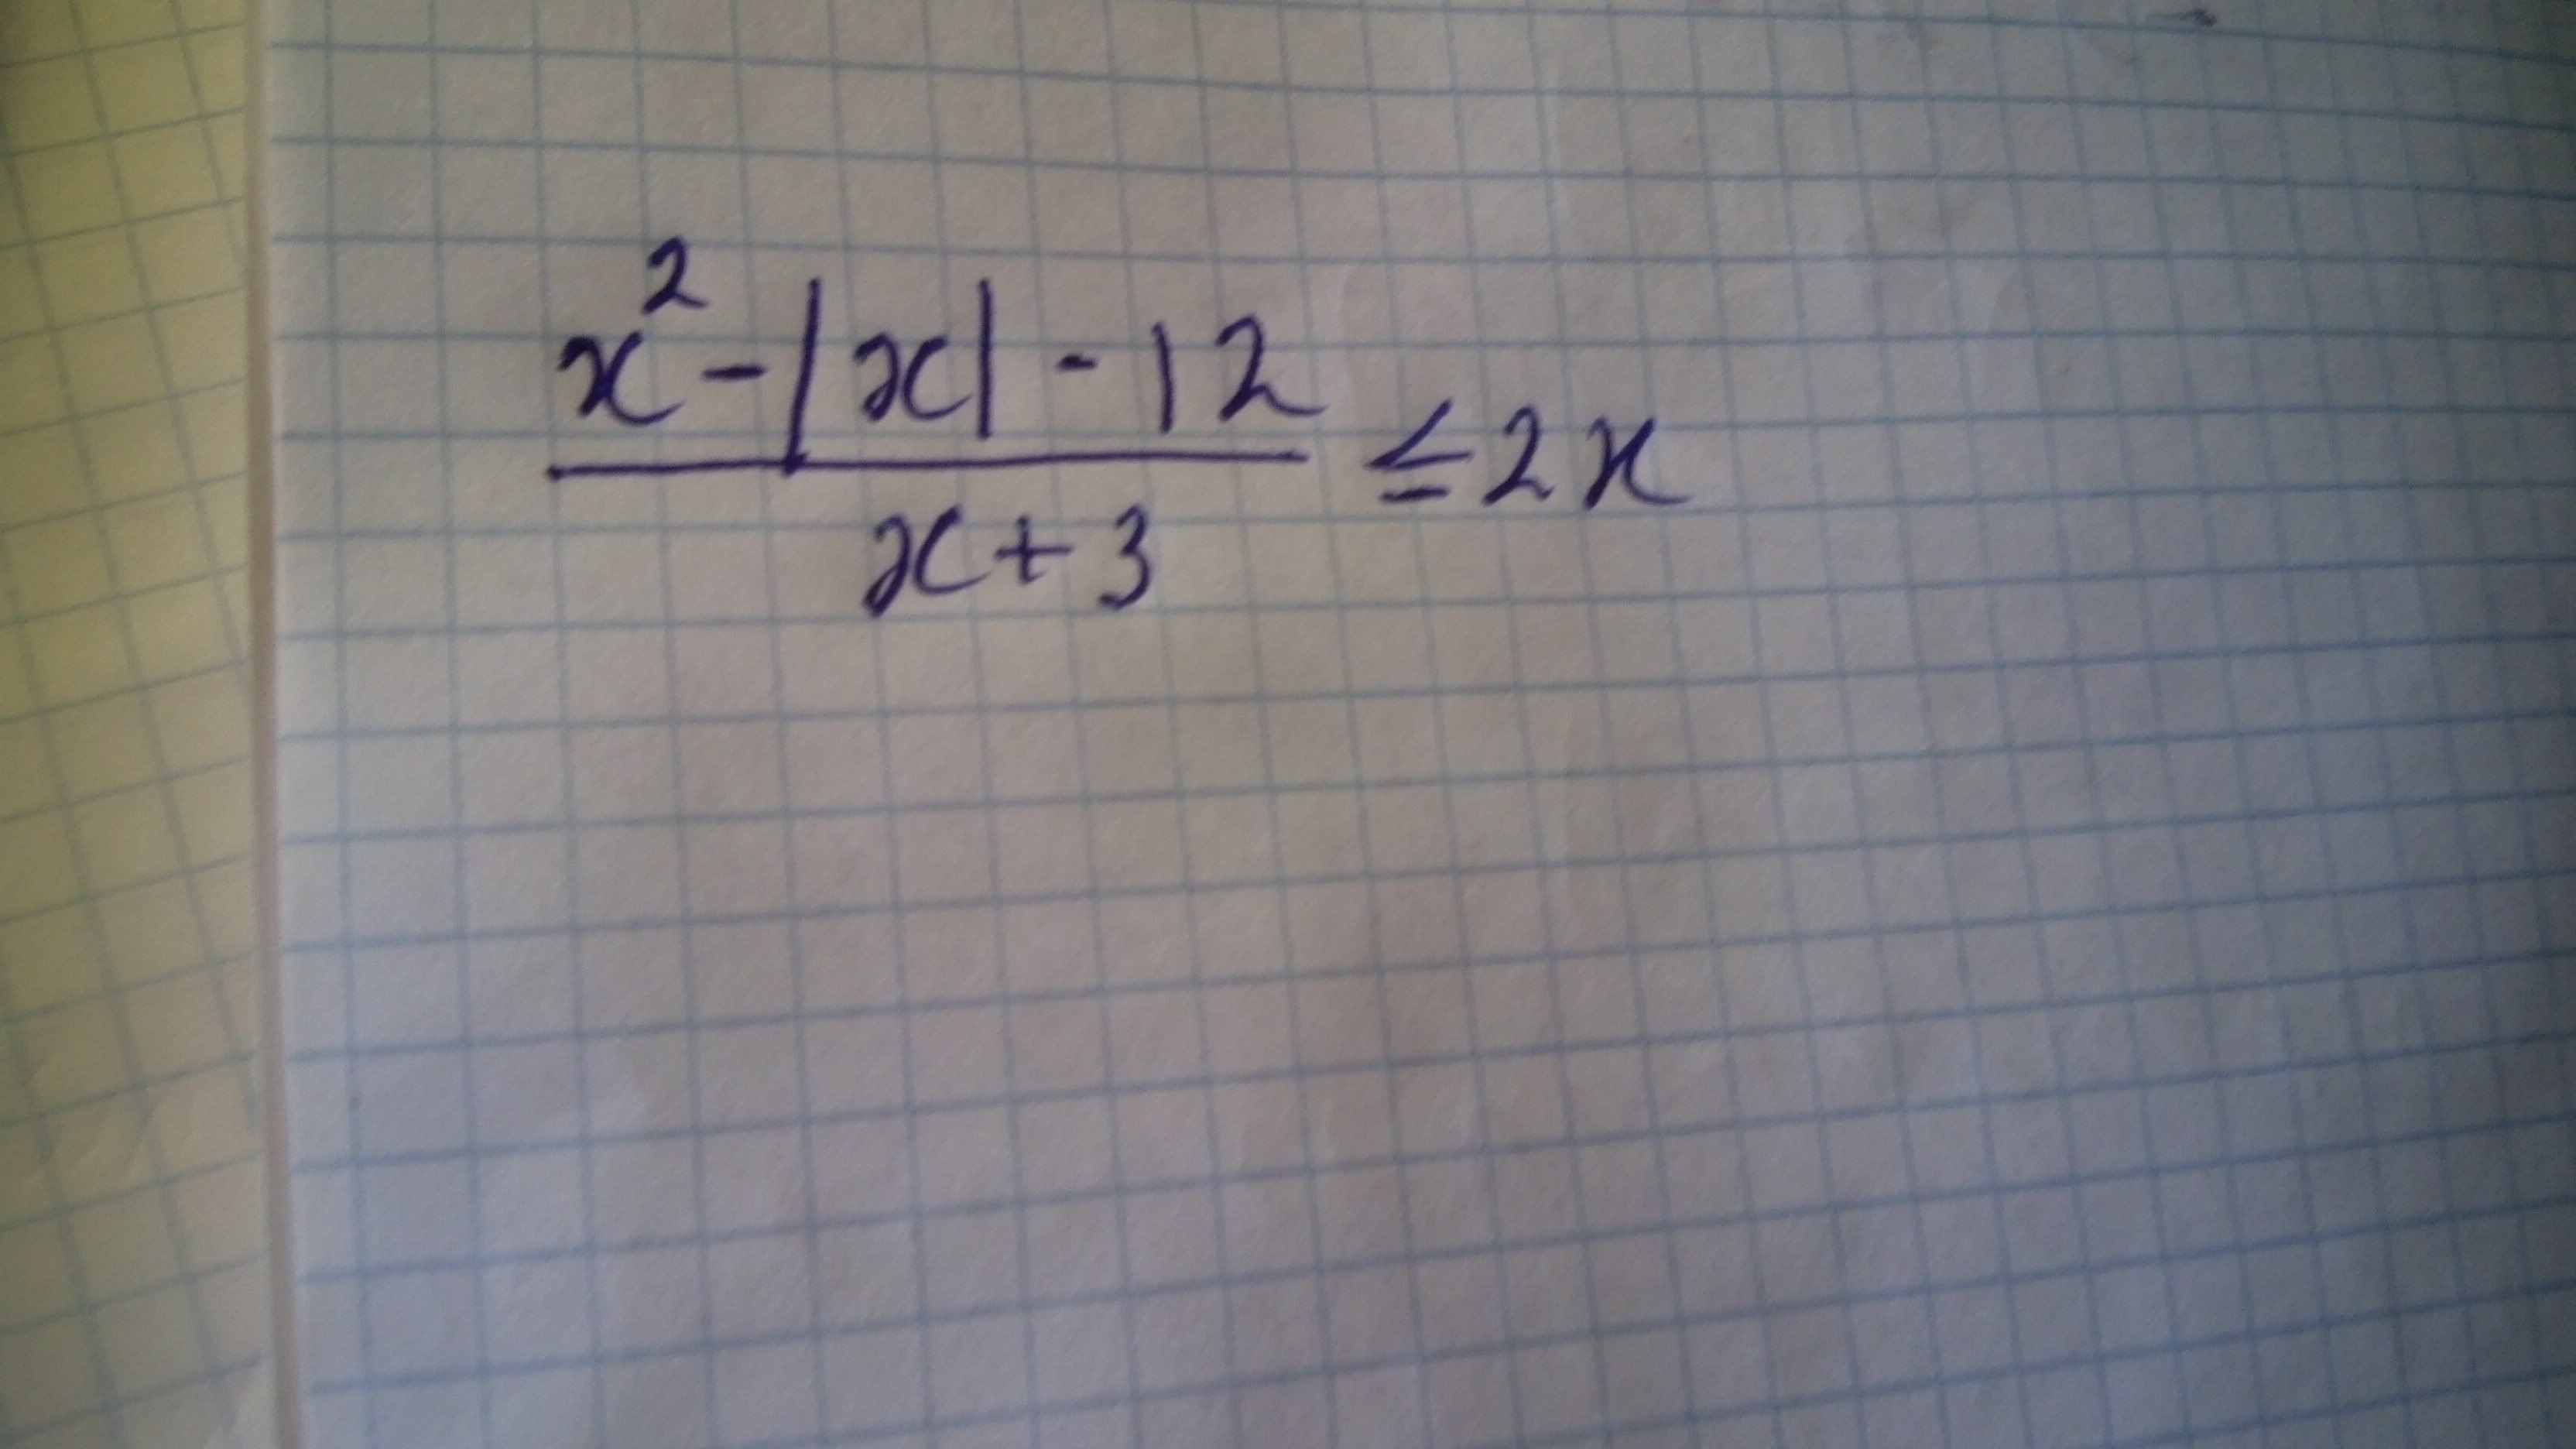 x² - |x| - 12
x + 3
≤ 2x